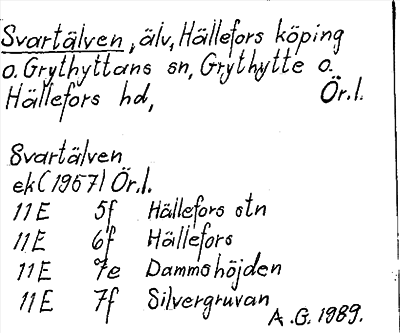 Svartälven, älv, Hällefors köping
o. Grythyttans sn, Grythytte o.
Hällefors hd, Ör.l.
Svartälven
ek (1957) Ör.l.
11E 5f Hällefors stn
11E 6f Hällefors
11E 7e Dammshöjden
11E 7f Silvergruvan
A.G. 1989.